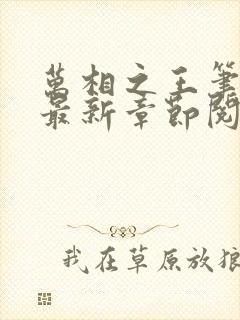 萬相之王筆
最新章節閱
我在草原放狼